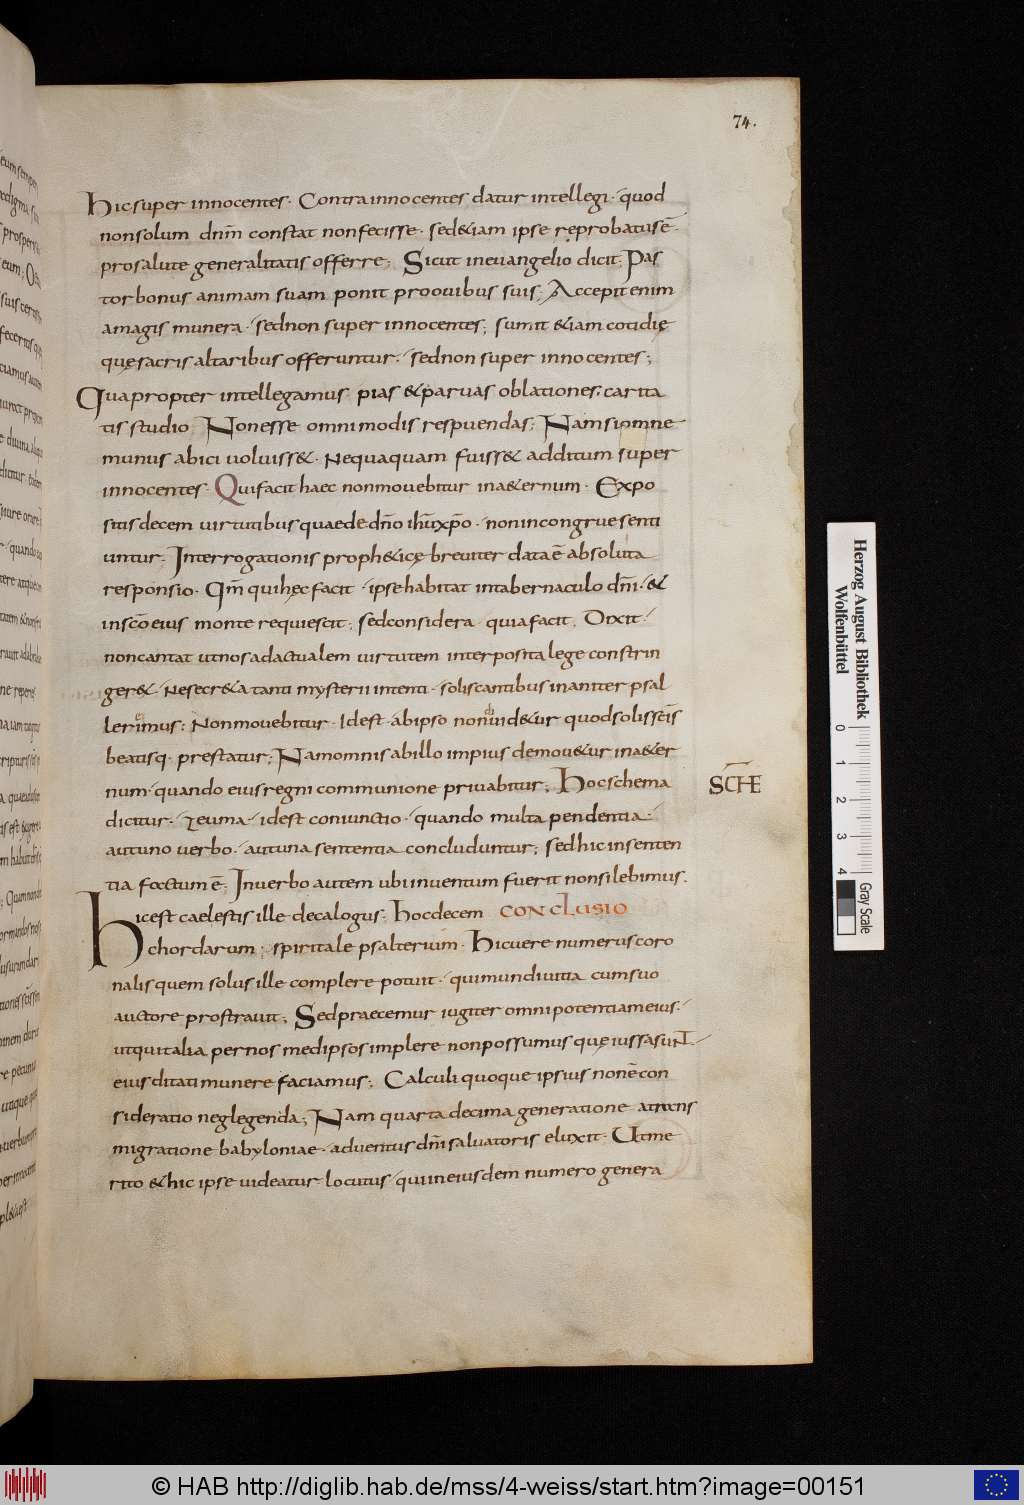 74.
hic super innocentes. Contra innocentes datur intellegi. quod
non solum dnm̄ constat non fecisse. sed&iam ipse reprobatusē.
pro salute generalitatis offerre; Sicut in euangelio dicit; Pas
tor bonus animam suam ponit pro ouibus suis; Accepit enim
a magis munera. sed non super innocentes; sumit &iam cotidię
quę sacris altaribus offeruntur. sed non super innocentes;
Quapropter intellegamus pias & paruas oblationes. carita
tis studio Non esse omnimodis respuendas; Nam si omne
munus abici uoluiss&. Nequaquam fuiss& additum super
innocentes. Qui facit haec non mouebitur in a&ernum. Expo
sitis decem uirtutibus quae de dn̄o ih̄u xp̄o. non incongrue senti
untur; Interrogationis proph&icę breuiter data ē absoluta
responsio. Qm̄ qui hęc facit. ipse habitat in tabernaculo dn̄i. &
in sc̄o eius monte requiescit; sed considera quia facit. Dixit.
non cantat ut nos ad actualem uirtutem interposita lege constrin
ger&. Ne secr&a tanti mysterii intenti. solis cantibus inaniter psal
lerimus; Non mouebitur. Idest. ab ipso non uid&ur quod solis sc̄is
beatisq. prestatur; Nam omnis ab illo impius demou&ur in a&er
num. quando eius regni communione priuabitur; Hoc schema
SCHE
dicitur. zeuma. idest coniunctio. quando multa pendentia.
aut uno uerbo. aut una sententia concluduntur; sed hic in senten
tia factum ē; In uerbo autem ubi inuentum fuerit non silebimus.
Hic est caelestis ille decalogus; hoc decem CONCLUSIO
chordarum; spiritale psalterium. Hic uere numerus coro
nalis quem solus ille complere potuit. qui mundi uitia cum suo
auctore prostrauit; Sed praecemur iugiter omnipotentiam eius.
ut qui talia per nosmedipsos implere non possumus quę iussa sunt.
eius ditati munere faciamus; Calculi quoque ipsius non ē con
sideratio neglegenda; Nam quarta decima generatione a trans
migratione babyloniae. aduentus dn̄i saluatoris eluxit. Ut me
rito & hic ipse uideatur locutus. qui in eiusdem numero genera
Herzog August Bibliothek
Wolfenbüttel
0 1 2 3 4
Gray Scale
© HAB http://diglib.hab.de/mss/4-weiss/start.htm?image=00151